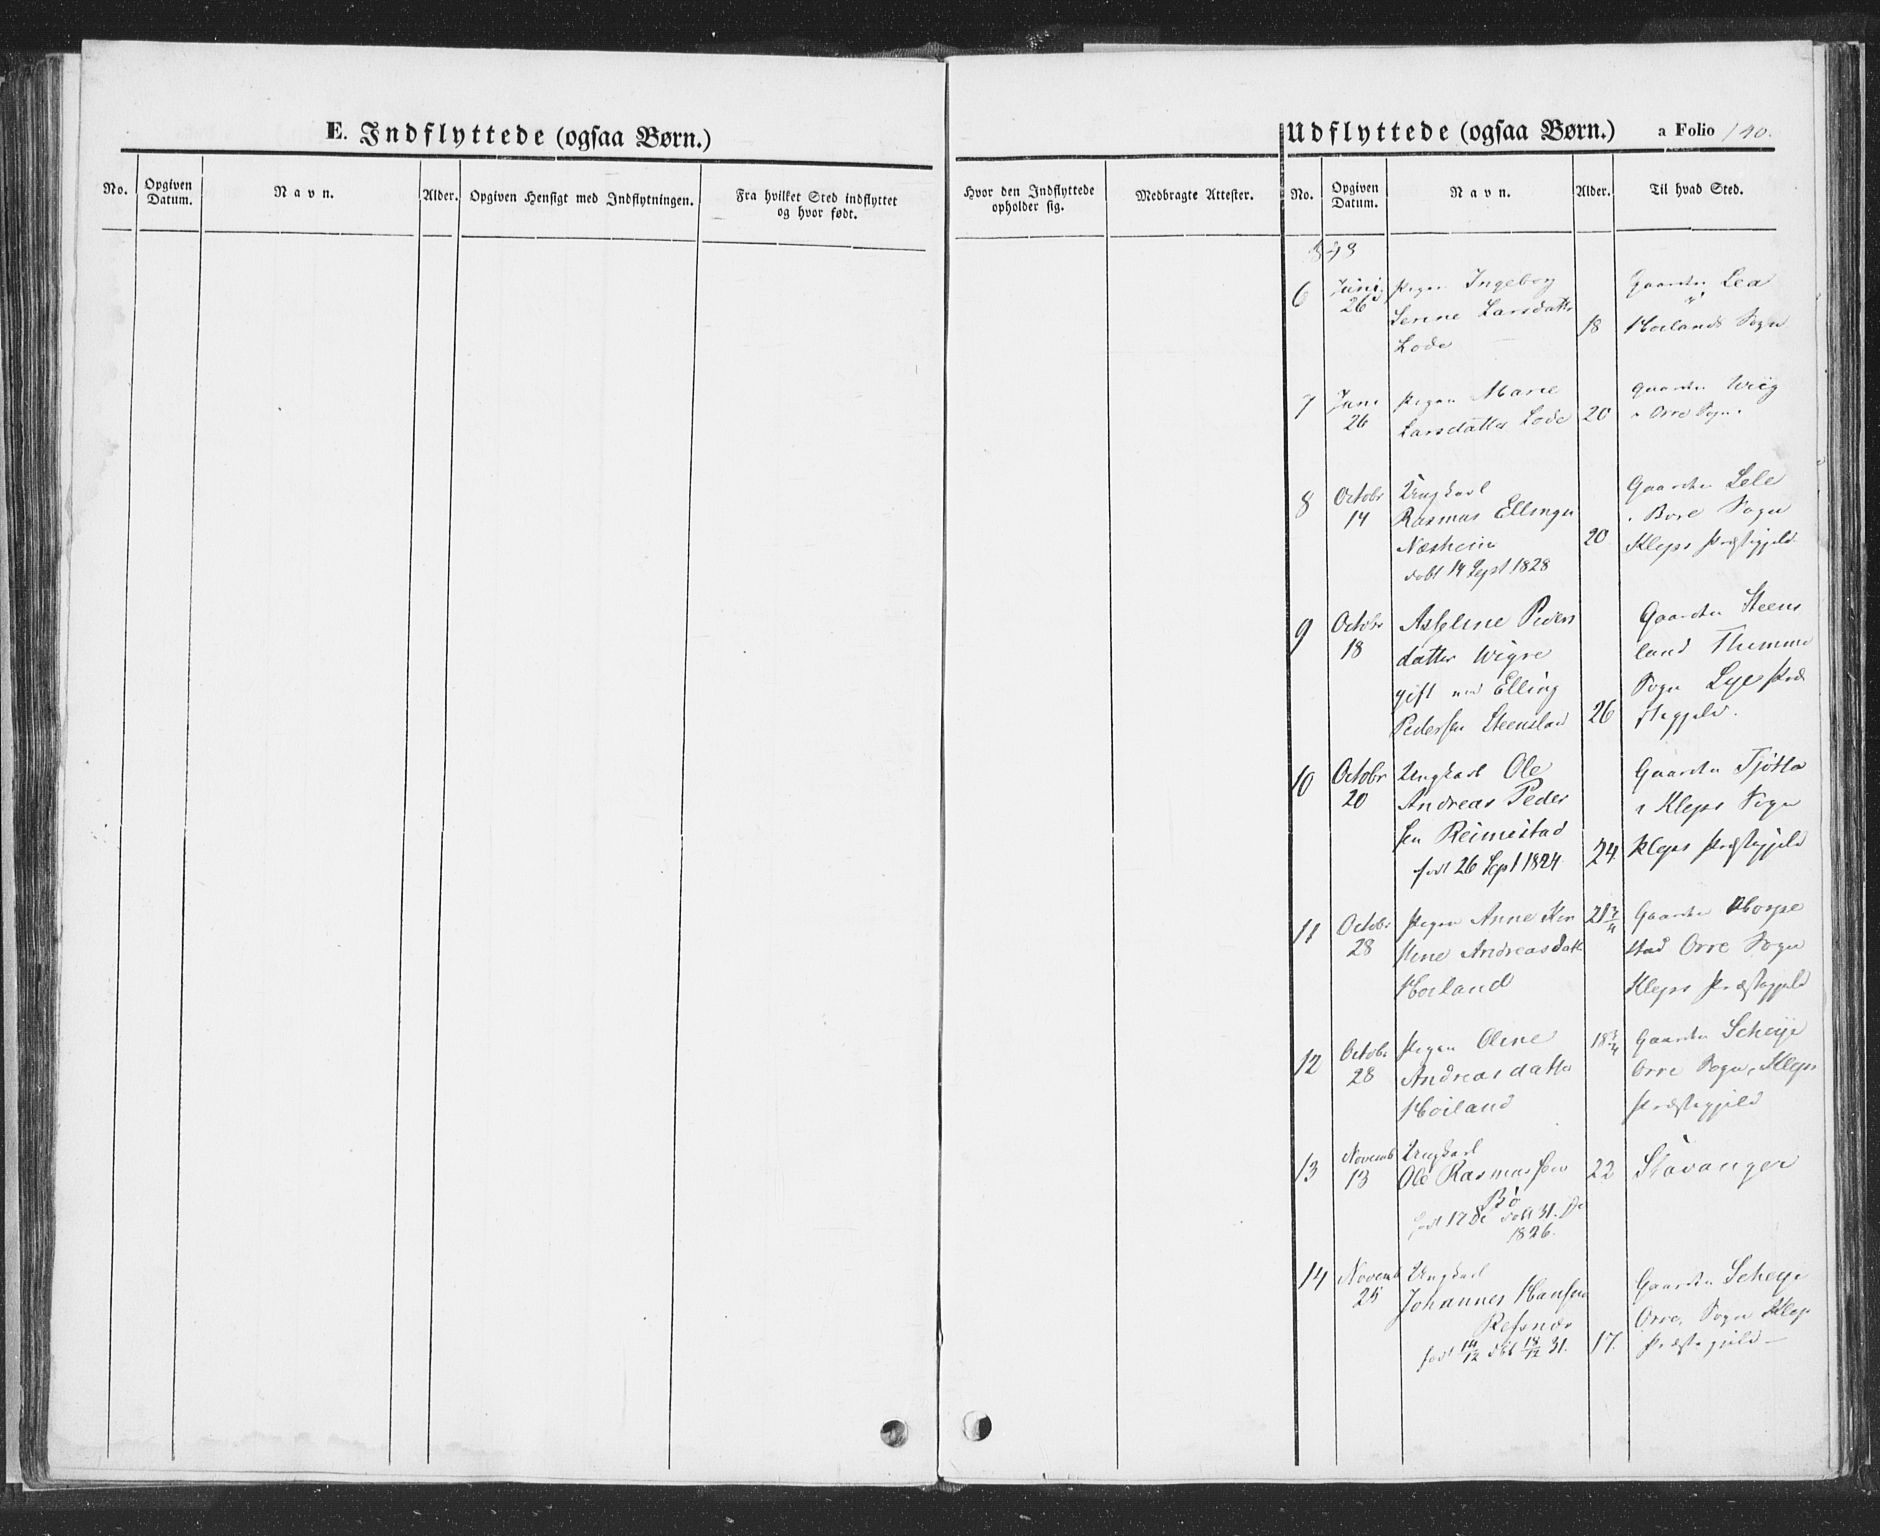 E. Indflyttede (ogsaa Børn.)
Udflyttede (ogsaa Børn.) a Folio 140.
No. Opgiven Datum. Navn. Alder. Opgiven Hensigt med Indflytningen. Fra hvilket Sted indflyttet og hvor født. Hvor den Indflyttede opholder sig. Medbragte Attester. No. Opgiven Datum. Navn. Alder. Til hvad Sted.
1848
6 Juni 26 Pigen Ingeborg
Serine Larsdatter
Lode
18
Gaarden Lea
i
Høilands Sogn
7 Juni 26 Pigen Marie
Larsdatter Lode
20
Gaarden Wiig
i Orre Sogn.
8 Octobr 14 Ungkarl
Rasmus Ellingsen
Næsheim
døbt 14 Sept 1828
20
Gaarden Sele
i Bore Sogn
Kleps Præstegjeld
9 Octobr 18 Aseline Peders
datter Wigre
gift med Elling
Pedersen Steensland
26
Gaarden Steens
land Thimme
Sogn Lye Præ
stegjeld.
10 Octobr 20 Ungkarl Ole
Andreas Peder
sen Reimestad
født 26 Sept 1824
24
Gaarden Tjøtta
i Kleps Sogn
Kleps Præstegjeld
11 Octobr 28 Pigen Anne Kir
stine Andreasdatt
Høiland
21 3/4
Gaarden Horpe
stad Orre Sogn
Kleps Præstegjeld
12 Octobr 28 Pigen Oline
Andreasdatter
Høiland
18 3/4
Gaarden Scheije
Orre Sogn, Kleps
Præstegjeld
13 Novemb 13 Ungkarl
Ole Rasmussen
Bø
født 17 De døbt 31. De
1826.
22
Stavanger
14 Novemb 25 Ungkarl
Johannes Hansen
Refsnæs
født 14/12 døbt 18/12 31.
17.
Gaarden Scheije
Orre, Sogn Klep
Præstegjeld